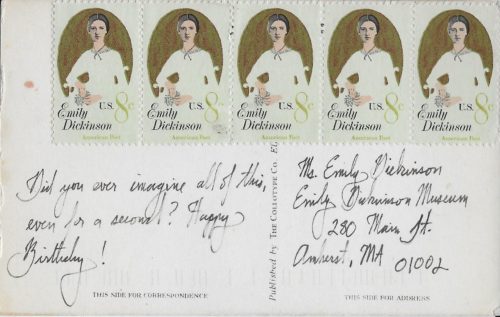 Emily Dickinson U.S. 8c American Poet
Emily Dickinson U.S. 8c American Poet
Emily Dickinson U.S. 8c American Poet
Emily Dickinson U.S. 8c American Poet
Emily Dickinson U.S. 8c American Poet
Did you ever imagine all of this,
even for a second? Happy
Birthday!
THIS SIDE FOR CORRESPONDENCE
Published by THE COLLOTYPE CO. EL
Ms. Emily Dickinson
Emily Dickinson Museum
280 Main St.
Amherst, MA
01002
THIS SIDE FOR ADDRESS